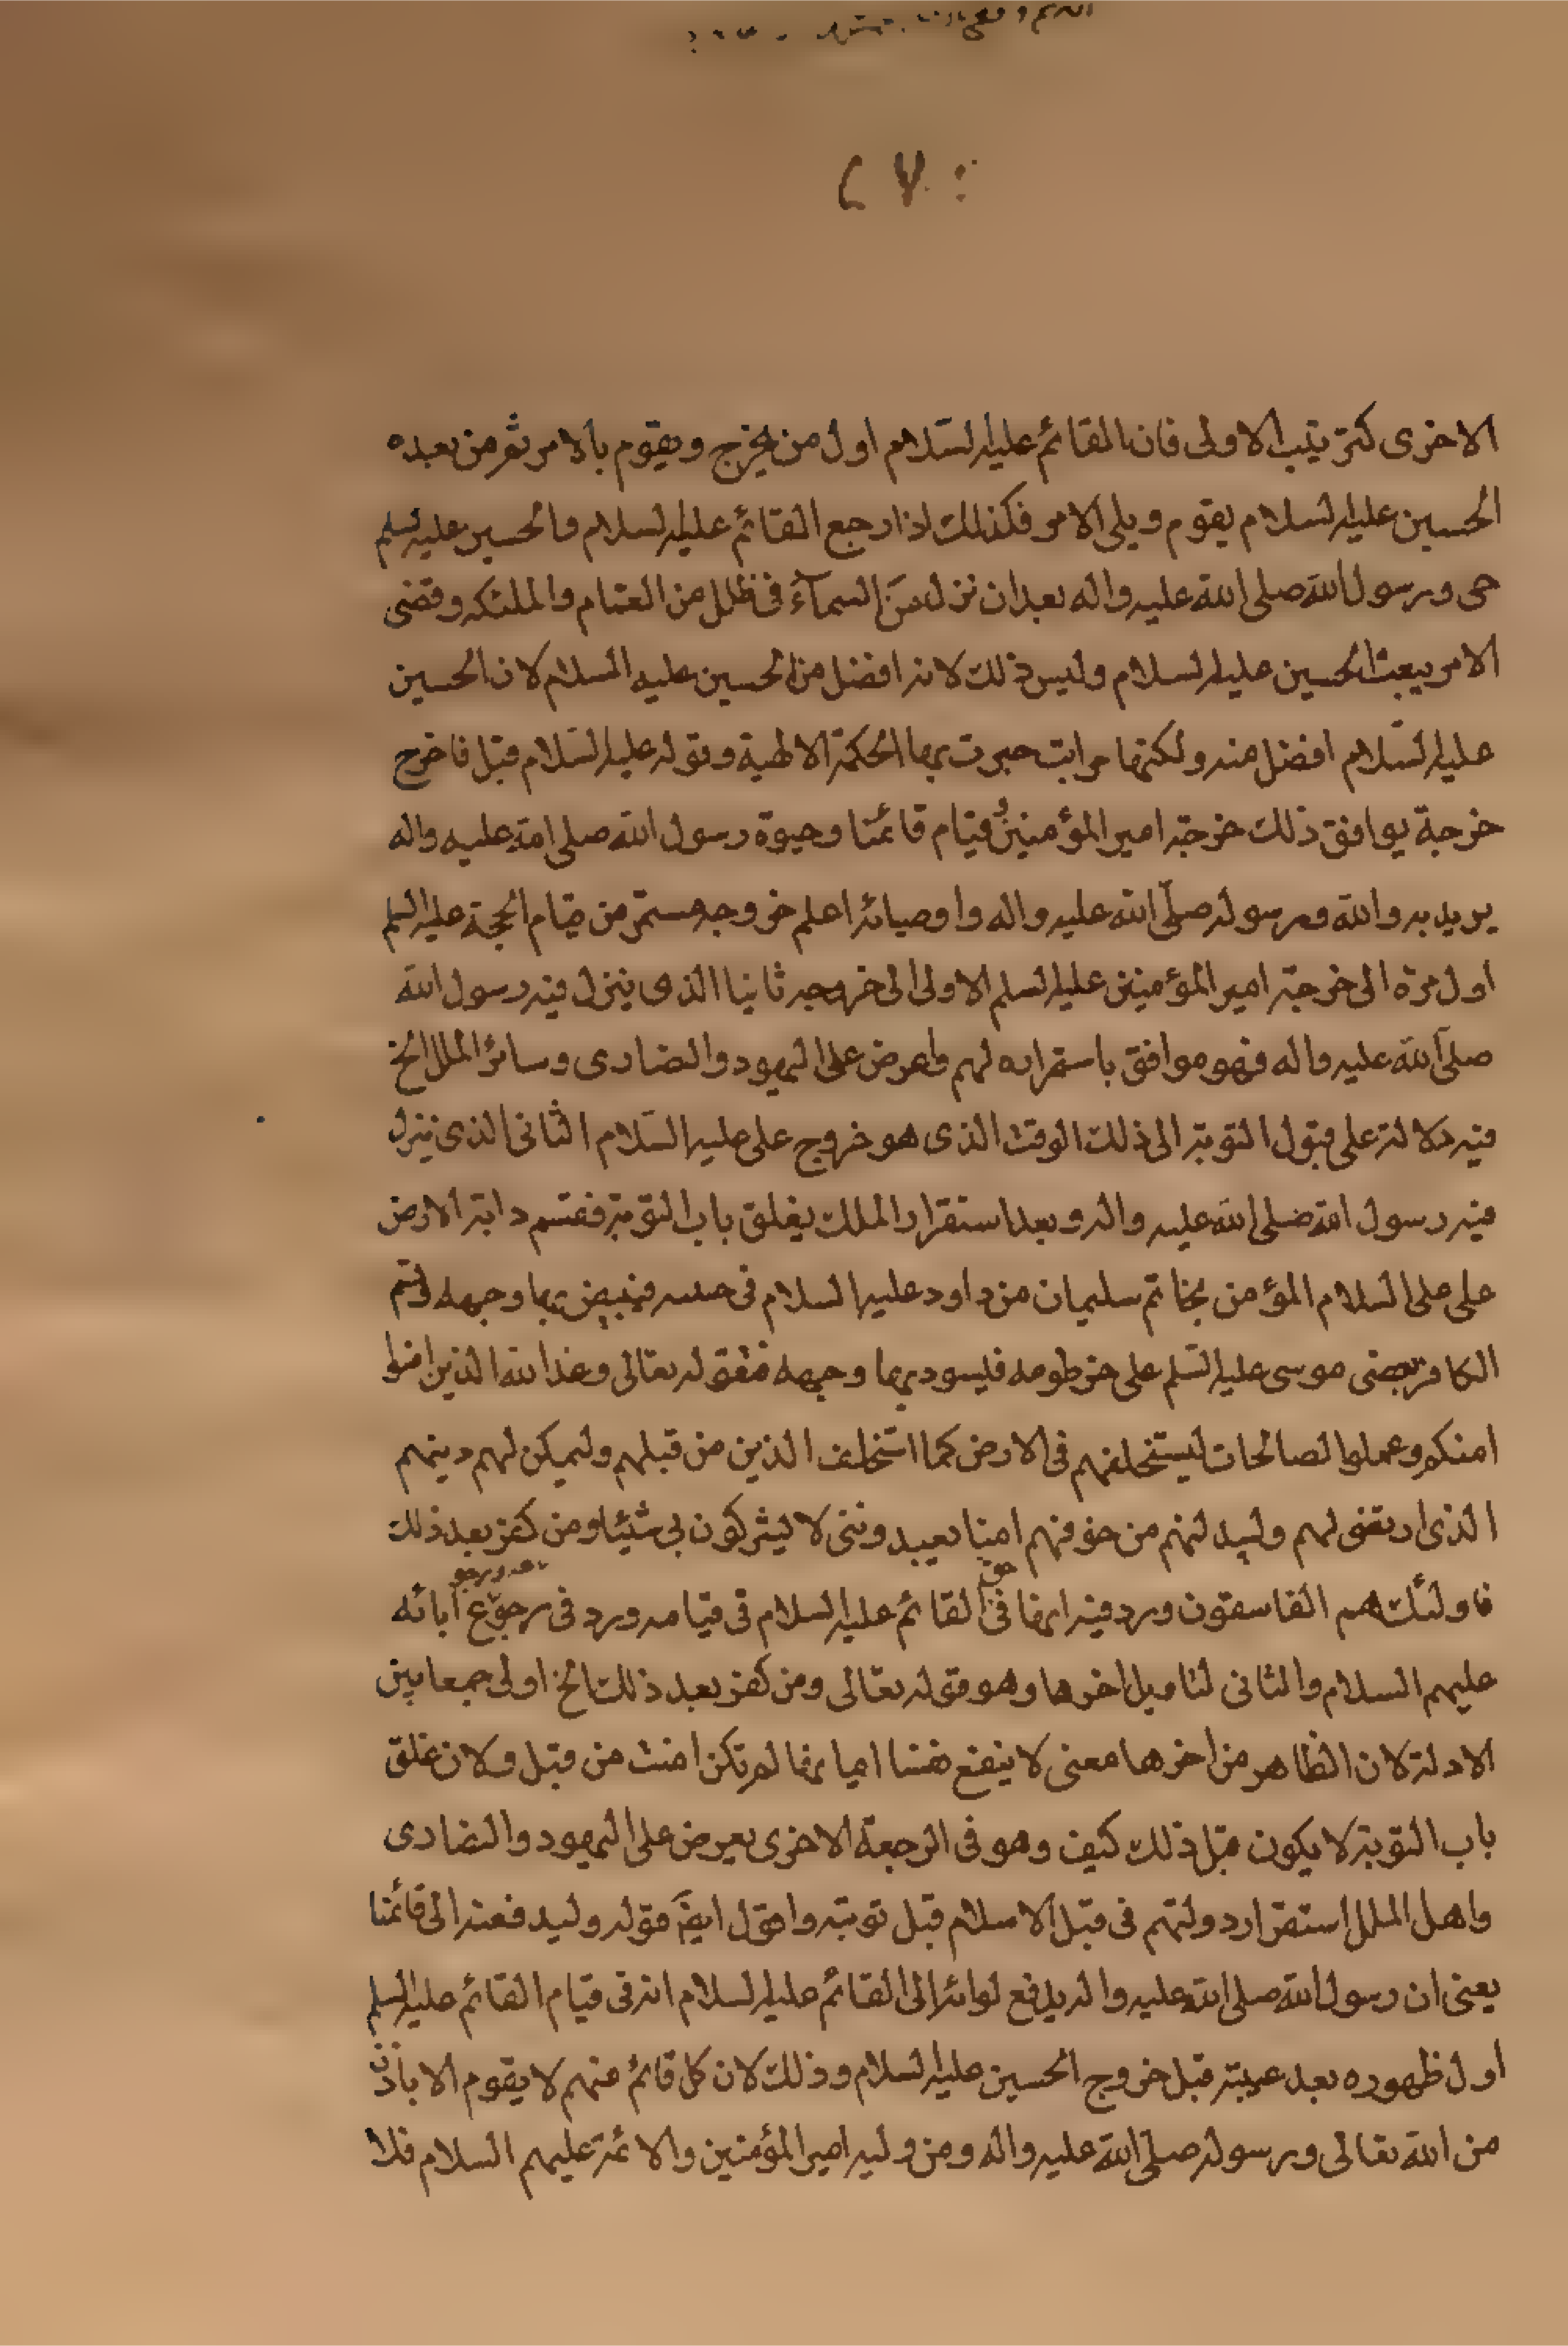 ٢٧٠
الاخرى كترتيب الاولى فان القائم عليه السّلام اول من يخرج ويقوم بالامر ثم من بعده
الحسين عليه السلام يقوم ويلى الامر فكذلك اذا رجع القائم عليه السلام والحسين عليه السلم
حى ورسول الله صلى الله عليه واله بعد ان نزل من السمآء فى ظلل من الغمام والملئكه وقضى
الامر يبعث الحسين عليه السلام وليس ذلك لانه افضل من الحسين عليه السلام لان الحسين
عليه السّلام افضل منه ولكنها مراتب جرت بها الحكمة الالهية وقوله عليه السّلام قبل فاخرج
خرجة يوافق ذلك خرجة امير المؤمنين و قيام قائمنا وحيوة رسول الله صلى الله عليه واله
يريد به والله ورسوله صلّى الله عليه واله واوصيائه اعلم خروجه مستمر من قيام الحجة عليه السلم
اول مرة الى خرجة امير المؤمنين عليه السلم الاولى الى خروجه ثانيا الذى ينزل فيه رسول الله
صلّى الله عليه واله فهو موافق باستمراره لهم واعرض على اليهود والنصارى وسائر الملل الخ
فيه دلالة على قبول التوبة الى ذلك الوقت الذى هو خروج على عليه السّلام الثانى الذى ينزل
فيه رسول الله صلى الله عليه واله وبعد استقرار الملك يغلق باب التوبة فتسم دابة الارض
على على السلام المؤمن بخاتم سليمان من داود عليه السلام فى فيبيض بها وجهه وتسم
الكافر بعصى موسى عليه السّلم على خرطومه فيسود بها وجهه فقوله تعالى وعد الله الذين امنوا
امنكم وعملوا الصالحات ليستخلفنهم فى الارض كما استخلف الذين من قبلهم وليمكن لهم دينهم
الذى ارتضى لهم وليبدلنهم من خوفهم امنا يعبدوننى لا يشركون بى شيئا ومن كفر بعد ذلك
فاولئك هم الفاسقون ورد فيه انها فى حق القائم عليه السلام فى قيامه ورد فى رجوع ابائه
عليهم السلام والثانى لتاويل اخرها وهو قوله تعالى ومن كفر بعد ذلك الخ اولى جمعا بين
الادلة لان الظاهر من اخرها معنى لا ينفع نفسا ايمانها لم تكن امنت من قبل ولان غلق
باب التوبة لا يكون قبل ذلك كيف وهو فى الرجعة الاخرى يعرض على اليهود والنصارى
واهل الملل استقرار دولتهم فى قبل الاسلام قبل توبته واقول ايضَ قوله وليدفعنه الى قائمنا
يعنى ان رسول الله صلى الله عليه واله يدفع لوائه الى القائم عليه السلام انه فى قيام القائم عليه السلم
اول ظهوره بعد غيبته قبل خروج الحسين عليه السلام وذلك لان كل قائم منهم لا يقوم الا باذن
من الله تعالى ورسوله صلّى الله عليه واله ومن وليه امير المؤمنين والائمة عليهم السلام فلا